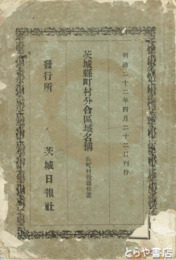 明治二十二年四月二十二日刊行
茨城縣町村分合區域名稱
發行所
茨城日報社
とらや書店